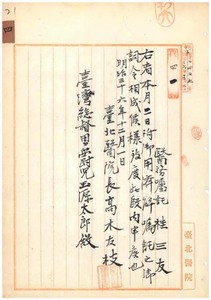 醫務囑託 桂三友
右者本月二日付御用濟解囑託之御
詞令相成候樣致度此段內申候也
明治三十六年十二月一日
臺北醫院長高木友枝
臺灣總督男爵兒玉源太郎殿
臺北醫院